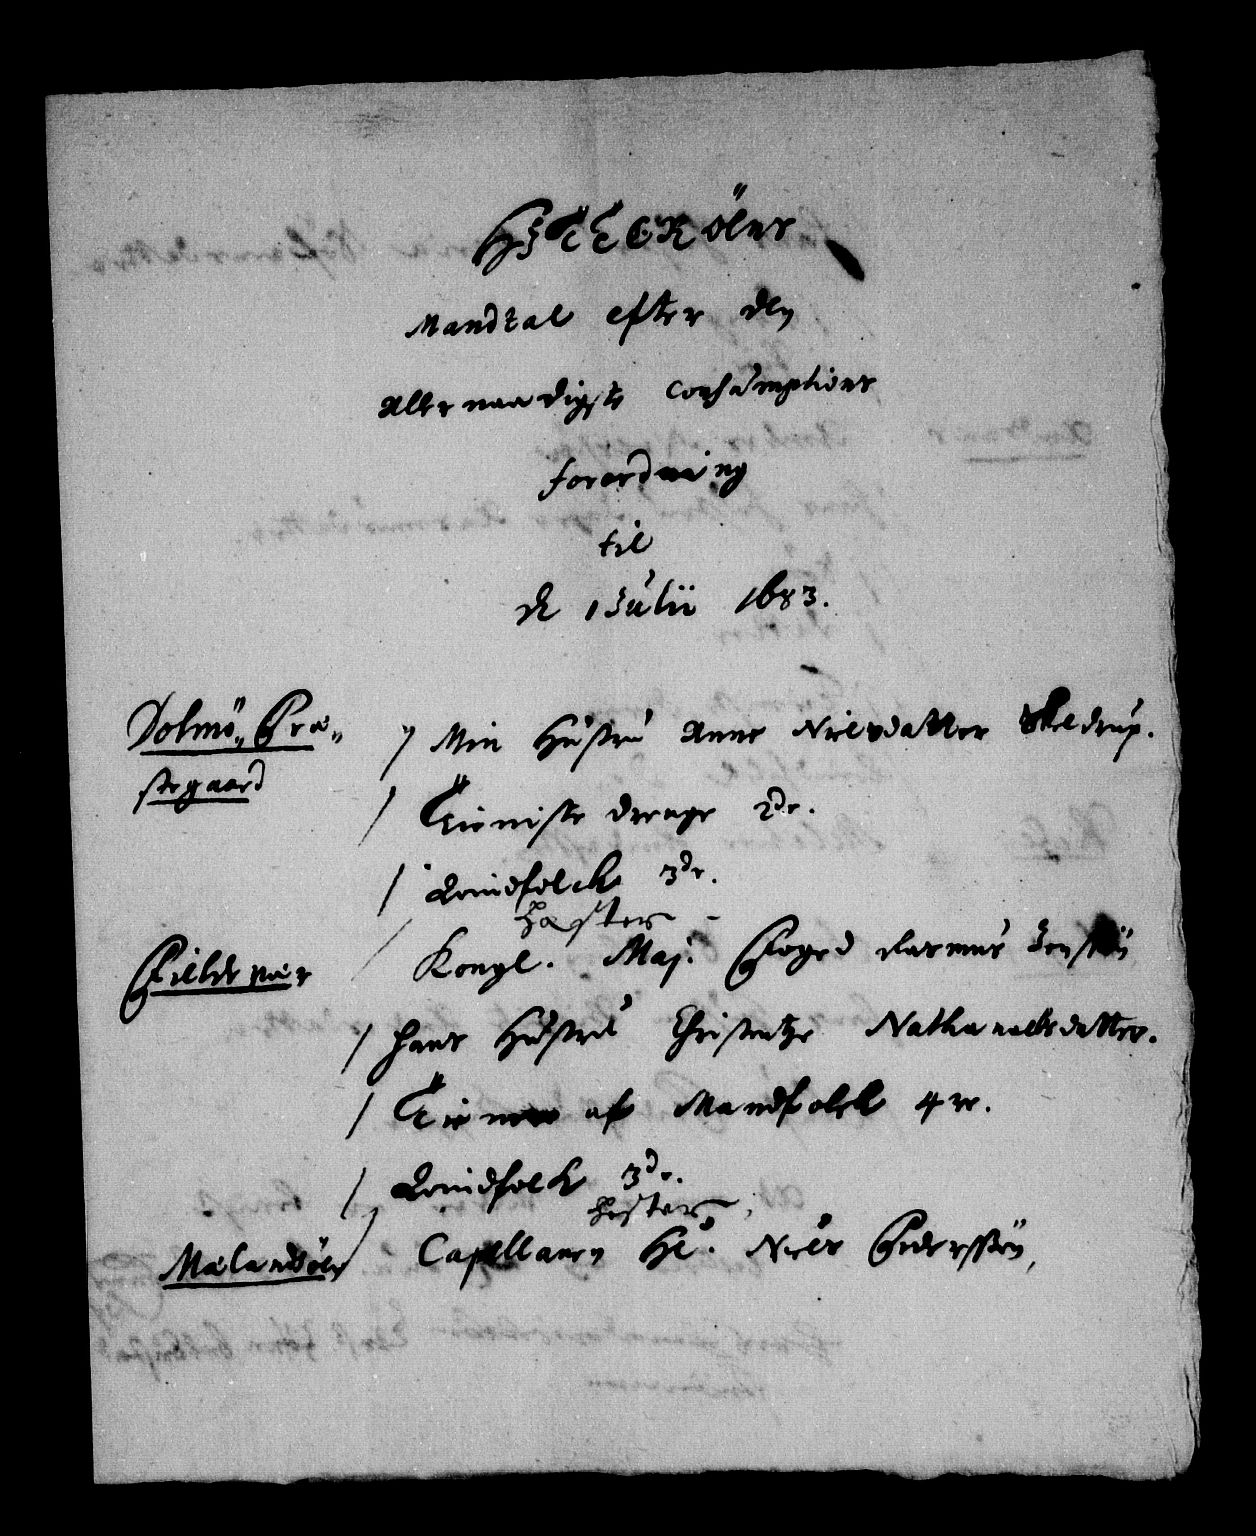 HitteRölns
Mandtal efter den
Allernaadigste Consumptions
forordning
til
de 1 Julii 1683.
Dolmö, Præ„
/ Min Hustru Anne Nielsdatter Skeldrup.
stegaard
/ Tieniste drenge 2de.
/ Qvindfolck 3de.
hester
Fieldvær
/ Kongl. Maj. Foged Rasmus Jenssön
/ hans Hustru Christentze Nathanaelsdatter.
/ Tiener af Mandfolck 4re.
/ Qvindfolck 3de.
hester
Mælandsöen
/ Capellanen Hr. Niels Pederssön,